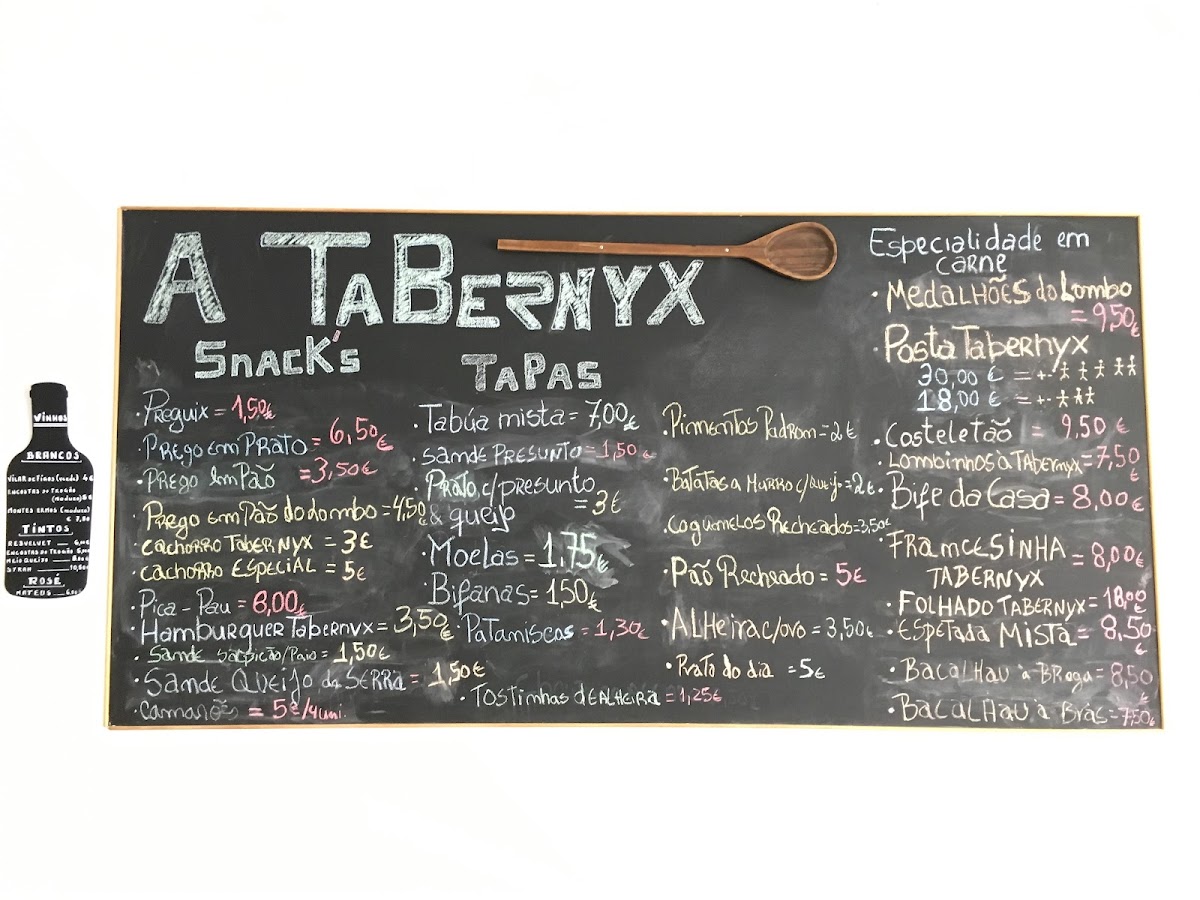 A TaBERNYX
Snack's
·Preguix = 1,50€
·Prego em Prato = 6,50€
·Prego em Pão = 3,50€
Prego em Pão do Lombo = 4,50€
·Cachorro Tabernyx = 3€
·Cachorro Especial = 5€
·Pica-Pau = 8,00€
·Hamburguer Tabernyx = 3,50€
·Sande Salpicão/Paio = 1,50€
·Sande Queijo da Serra = 1,50€
·Camarões = 5€/4uni.
TaPas
·Tabúa mista = 7,00€
·Sande Presunto = 1,50€
·Prato c/presunto
& queijo = 3€
·Moelas = 1,75€
·Bifanas = 1,50€
·Pataniscas = 1,30€
·Tostinhas de Alheira = 1,25€
·Pimentos Padrom = 2€
·Batatas a Murro c/queijo = 2€
·Cogumelos Recheados = 3,50€
·Pão Recheado = 5€
·Alheira c/ovo = 3,50€
·Prato do dia = 5€
Especialidade em
carne
·Medalhões do Lombo
= 9,50€
·Posta Tabernyx
30,00 € = +-
18,00 € = +-
·Costeletão = 9,50€
·Lombinhos à Tabernyx = 7,50€
·Bife da Casa = 8,00€
·Framcesinha
Tabernyx = 8,00€
·Folhado Tabernyx = 18,00€
·Espetada Mista = 8,50€
·Bacalhau à Braga = 8,50€
·Bacalhau à Brás = 7,50€
Vinhos
BRANCOS
TINTOS
ROSÉ
MATEUS